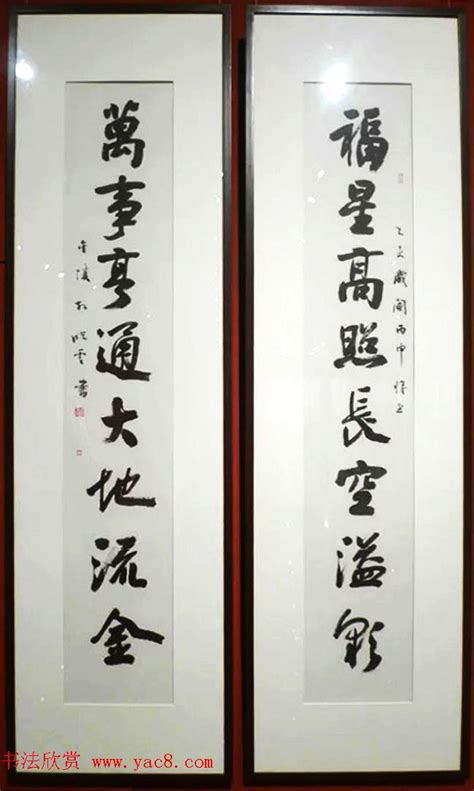 福星高照長空溢彩
乙未歲闌丙申
萬事亨通大地流金
金陵孫曉雲書
书法欣赏 www.yac8.com